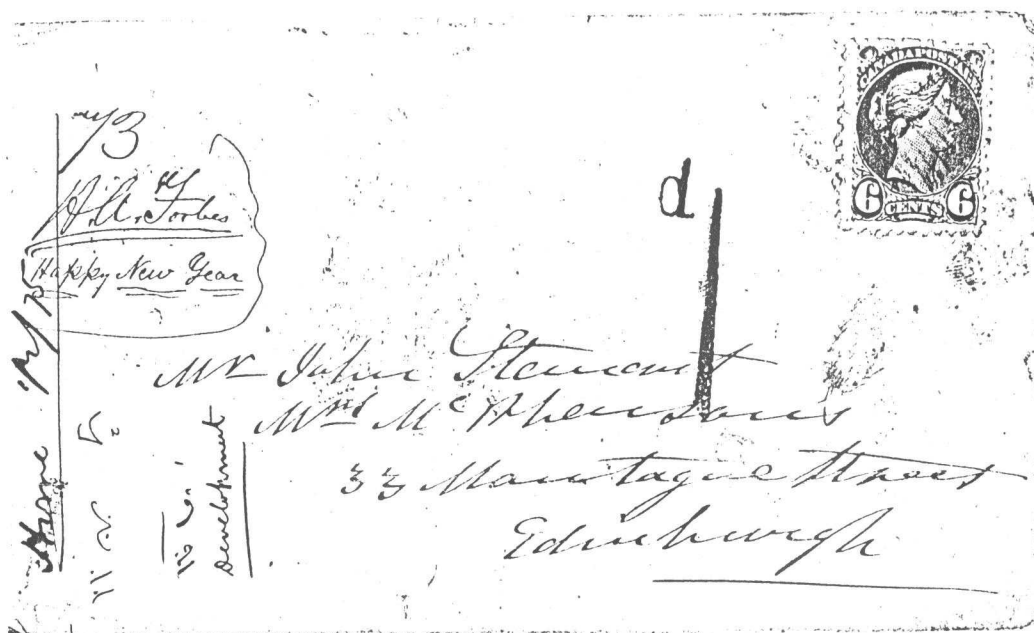 CANADA POSTAGE
6 CENTS 6
H.A. Forbes
Happy New Year
d 1
Mr John Stewart
Mrs McPhersons
33 Mountague Street
Edinburgh
Development